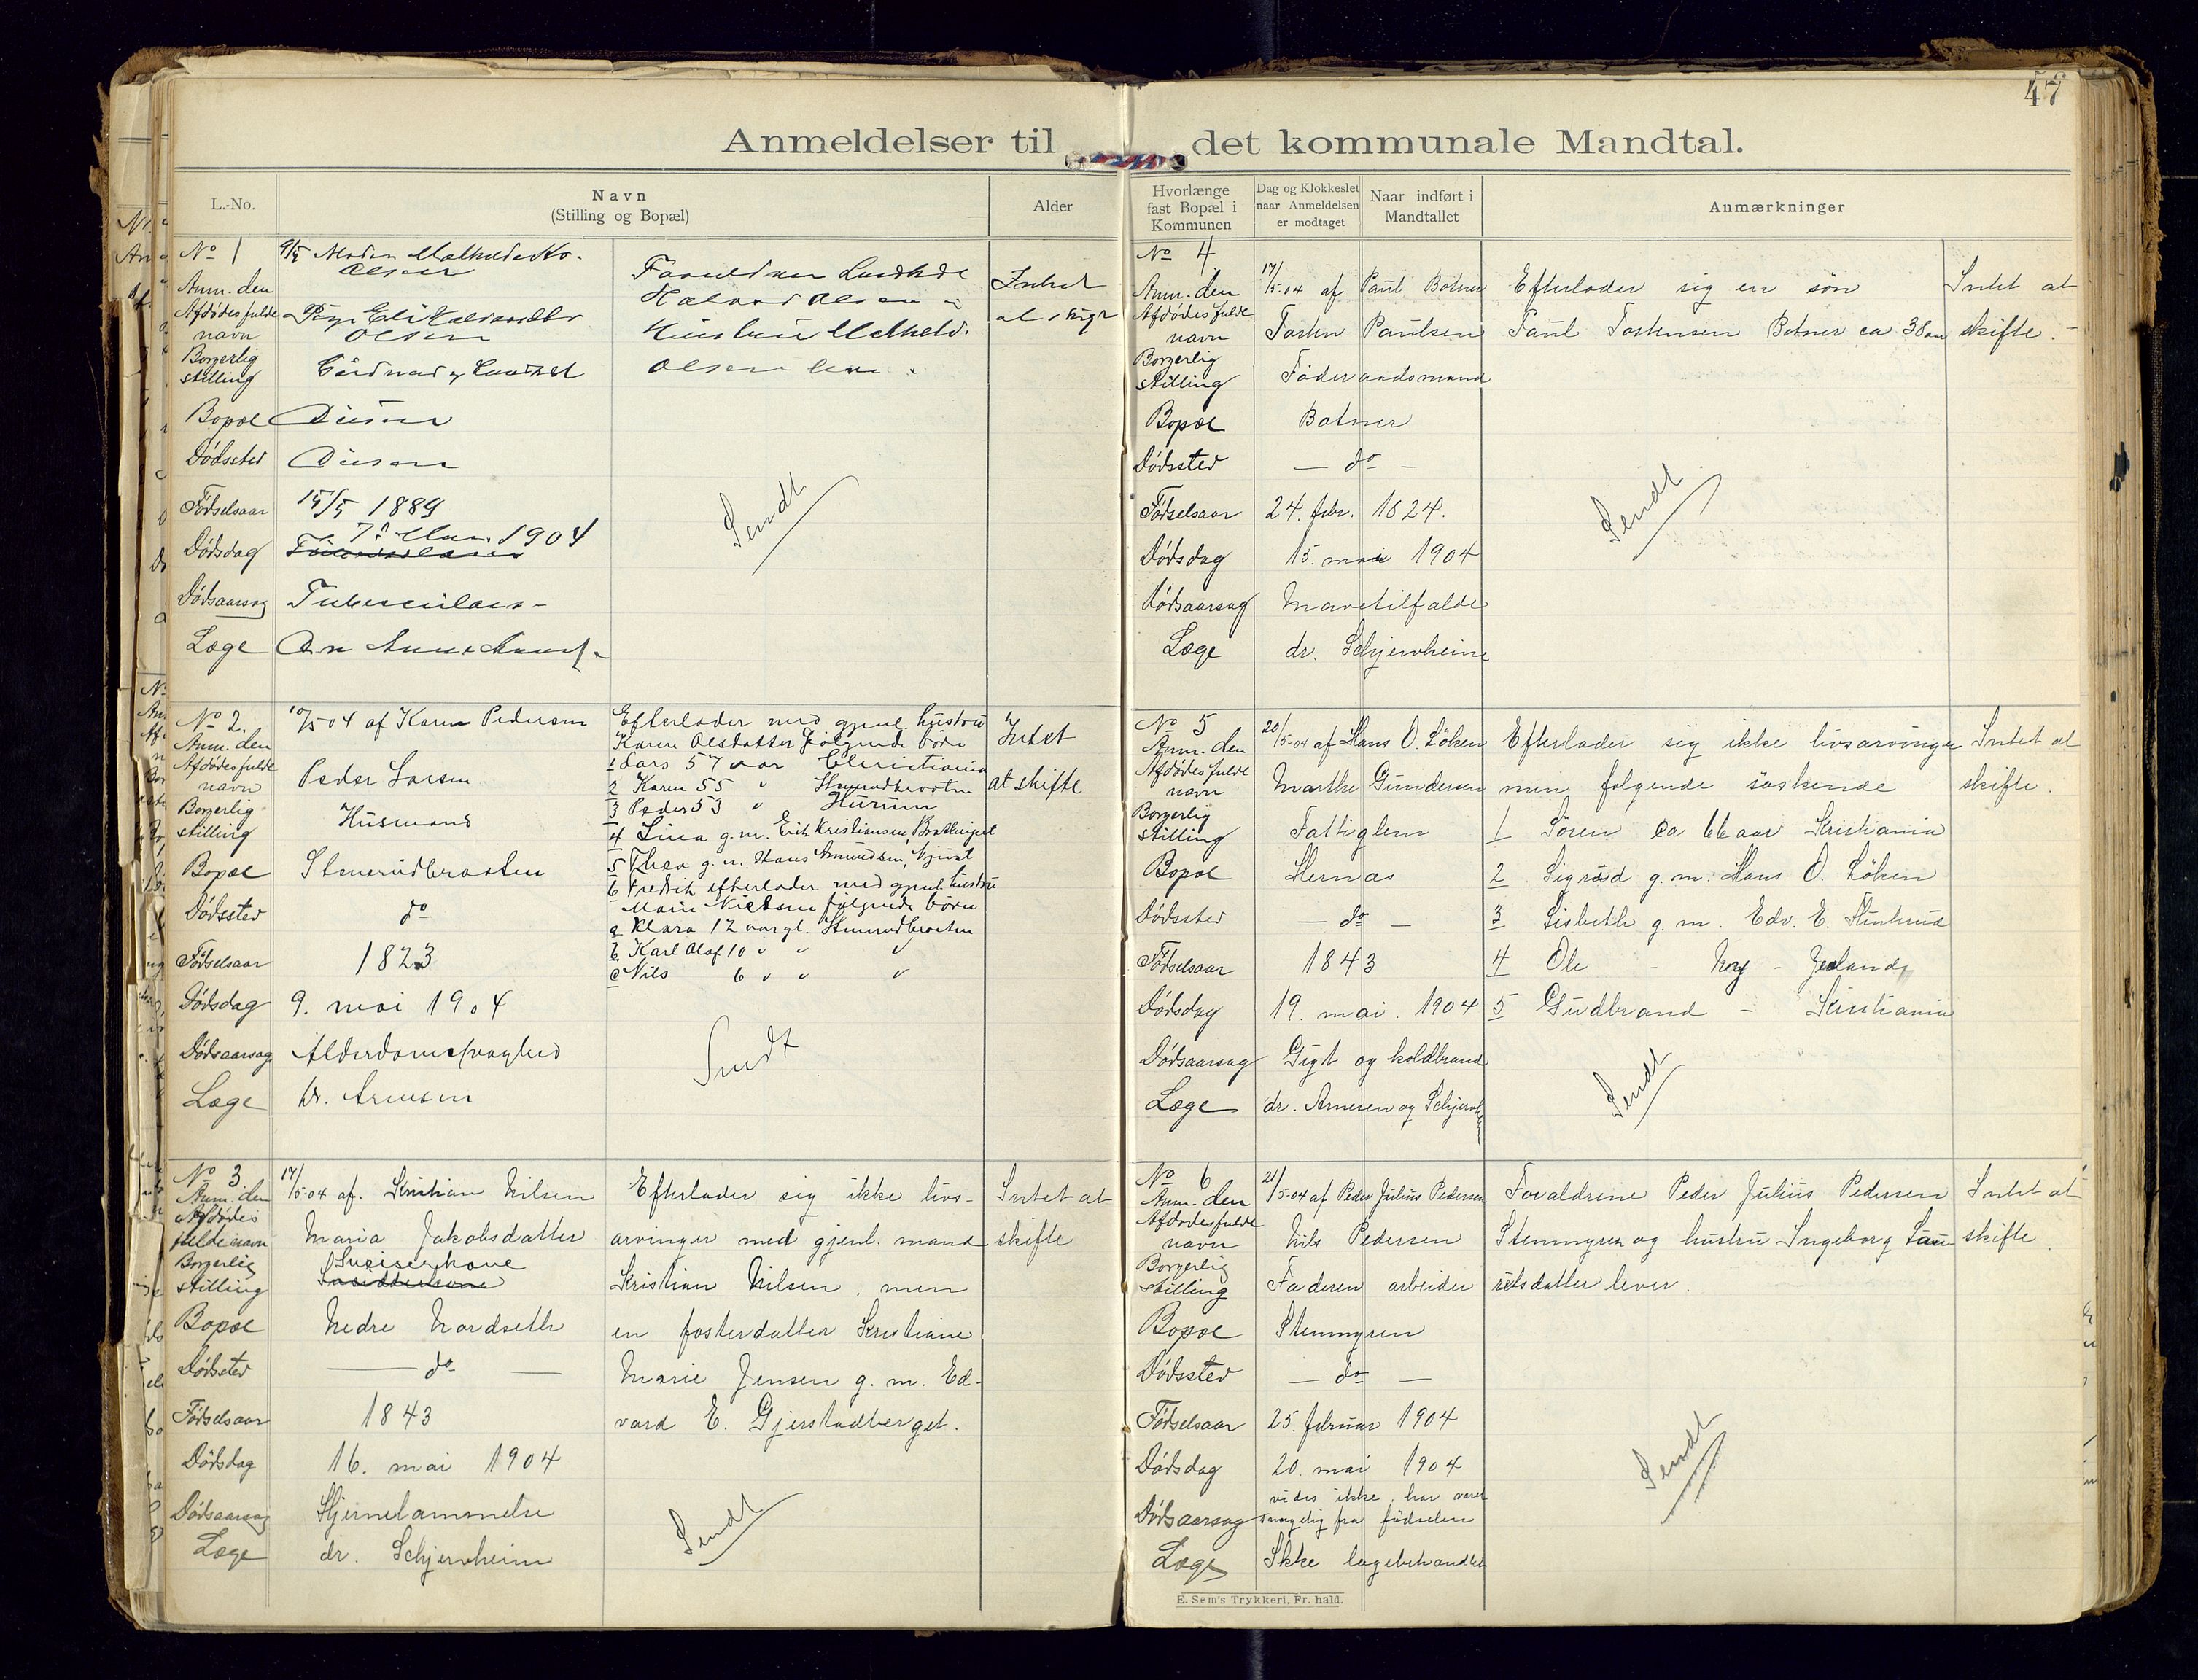 47
Anmeldelser til det kommunale Mandtal.
L.-No.
Navn
(Stilling og Bopæl)
Alder
Hvorlænge
fast Bopæl i
Kommunen
Dag og Klokkeslet
naar Anmeldelsen
er modtaget
Naar indført i
Mandtallet
Anmærkninger
No 1
9/5
Olsen
Anm. den
Afdødes fulde
navn
Olsen
Borgerlig
stilling
Bopæl
Dødssted
Fødselsaar 15/5 1889
Dødsdag 7. 1904
Dødsaarsag
Læge
Intet
Olsen
Sendt
No 2.
Anm. den 10/5 04 af Karen Pedersen
Afdødes fulde
navn Peder Larsen
Borgerlig
stilling Husmand
Bopæl Stenerudbraaten
Dødssted do
Fødselsaar 1823
Dødsdag 9. mai 1904
Dødsaarsag Alderdomssvaghed
Læge Dr. Arnesen
Efterlader med gjenl. hustru
Karen Olsdatter følgende børn
1 Lars 57 aar Christiania
2 Karen 55 " Stenerudbraaten
3 Peder 53 " Hurum
4 Lina g. m. Erik Kristiansen
5 Thea g. m. Hans Amundsen,
6 Fredrik efterlader med gjenl. hustru
Marie Nielsen følgende børn
a Klara 12 aar gl. Stenerudbraaten
b Karl Olaf 10 " " "
c Nils 6 " " "
Intet
at skifte
Sendt
No 3
Anm. den 17/5-04 af. Kristian Nilsen
Afdødes
fulde navn Maria Jakobsdatter
Borgerlig
stilling
Bopæl Nedre Nordseth
Dødssted — do —
Fødselsaar 1843
Dødsdag 16. mai 1904
Dødsaarsag Hjernelammelse
Læge dr. Schjervheim
Efterlader sig ikke livs-
arvinger med gjenl. mand
Kristian Nilsen, men
en fosterdatter Kristiane
Marie Jensen g. m. Ed-
vard E. Gjerstadberget.
Intet at
skifte
Sendt
No 4
Anm. den 17/5-04 af Paul Botner
Afdødes fulde
navn Torsten Paulsen
Borgerlig
stilling Føderaadsmand
Bopæl Botner
Dødssted — do —
Fødselsaar 24. febr. 1824.
Dødsdag 15. mai 1904
Dødsaarsag Mavetilfælde
Læge dr. Schjervheim
Efterlader sig en søn
Paul Torstensen Botner ca 38 aar
Intet at
skifte.
Sendt
No 5
Anm. den 20/5-04 af Hans O. Løken
Afdødes fulde
navn Marthe Gundersen
Borgerlig
stilling Fattiglem
Bopæl Hernæs
Dødssted — do —
Fødselsaar 1843
Dødsdag 19. mai. 1904
Dødsaarsag Gigt og koldbrand
Læge dr. Arnesen og Schjervheim
Efterlader sig ikke livsarvinger
men følgende søskende
1 Søren ca 66 aar Kristiania
2 Sigrid g. m. Hans O. Løken
3 Lisbeth g. m. Edv. E.
4 Ole
5 Gudbrand — Kristiania
Intet at
skifte.
Sendt
No 6
Anm. den 21/5-04 af Peder Julius Pedersen
Afdødes fulde
navn Nils Pedersen
Borgerlig
stilling Faderen arbeider
Bopæl Stenmyren
Dødssted — do —
Fødselsaar 25. februar 1904
Dødsdag 20. mai 1904
Dødsaarsag vides ikke, har været
svagelig fra fødselen
Læge Ikke lægebehandlet
Forældrene Peder Julius Pedersen
Stenmyren og hustru Ingeborg Lau-
ritsdatter lever.
Intet at
skifte.
Sendt
E. Sem's Trykkeri, Fr. hald.